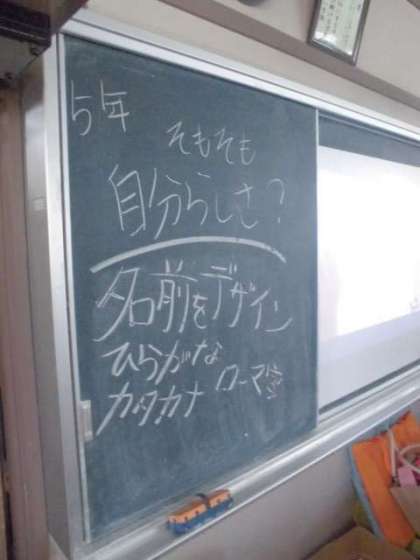 5年
そもそも
自分らしさ?
名前をデザイン
ひらがな
カタカナ ローマ字